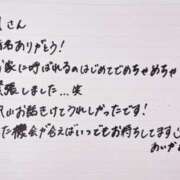 さん
名ありがとう！
家に呼ばれるのはじめてでめちゃめちゃ
張しました…笑
沢山お話けてうれしかったです！
た機会が合えばいつでもお待ちしてます
あいか